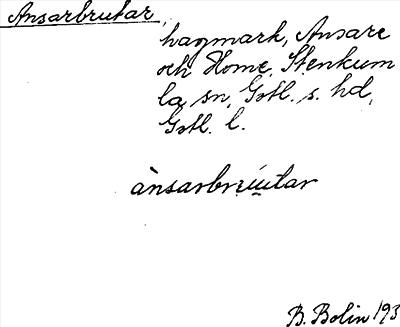 Ansarbrutar,
hagmark, Ansare
och Home, Stenkum
la sn, Gotl. s. hd,
Gotl. l.
ànsarbrúutar
B. Bolin 193